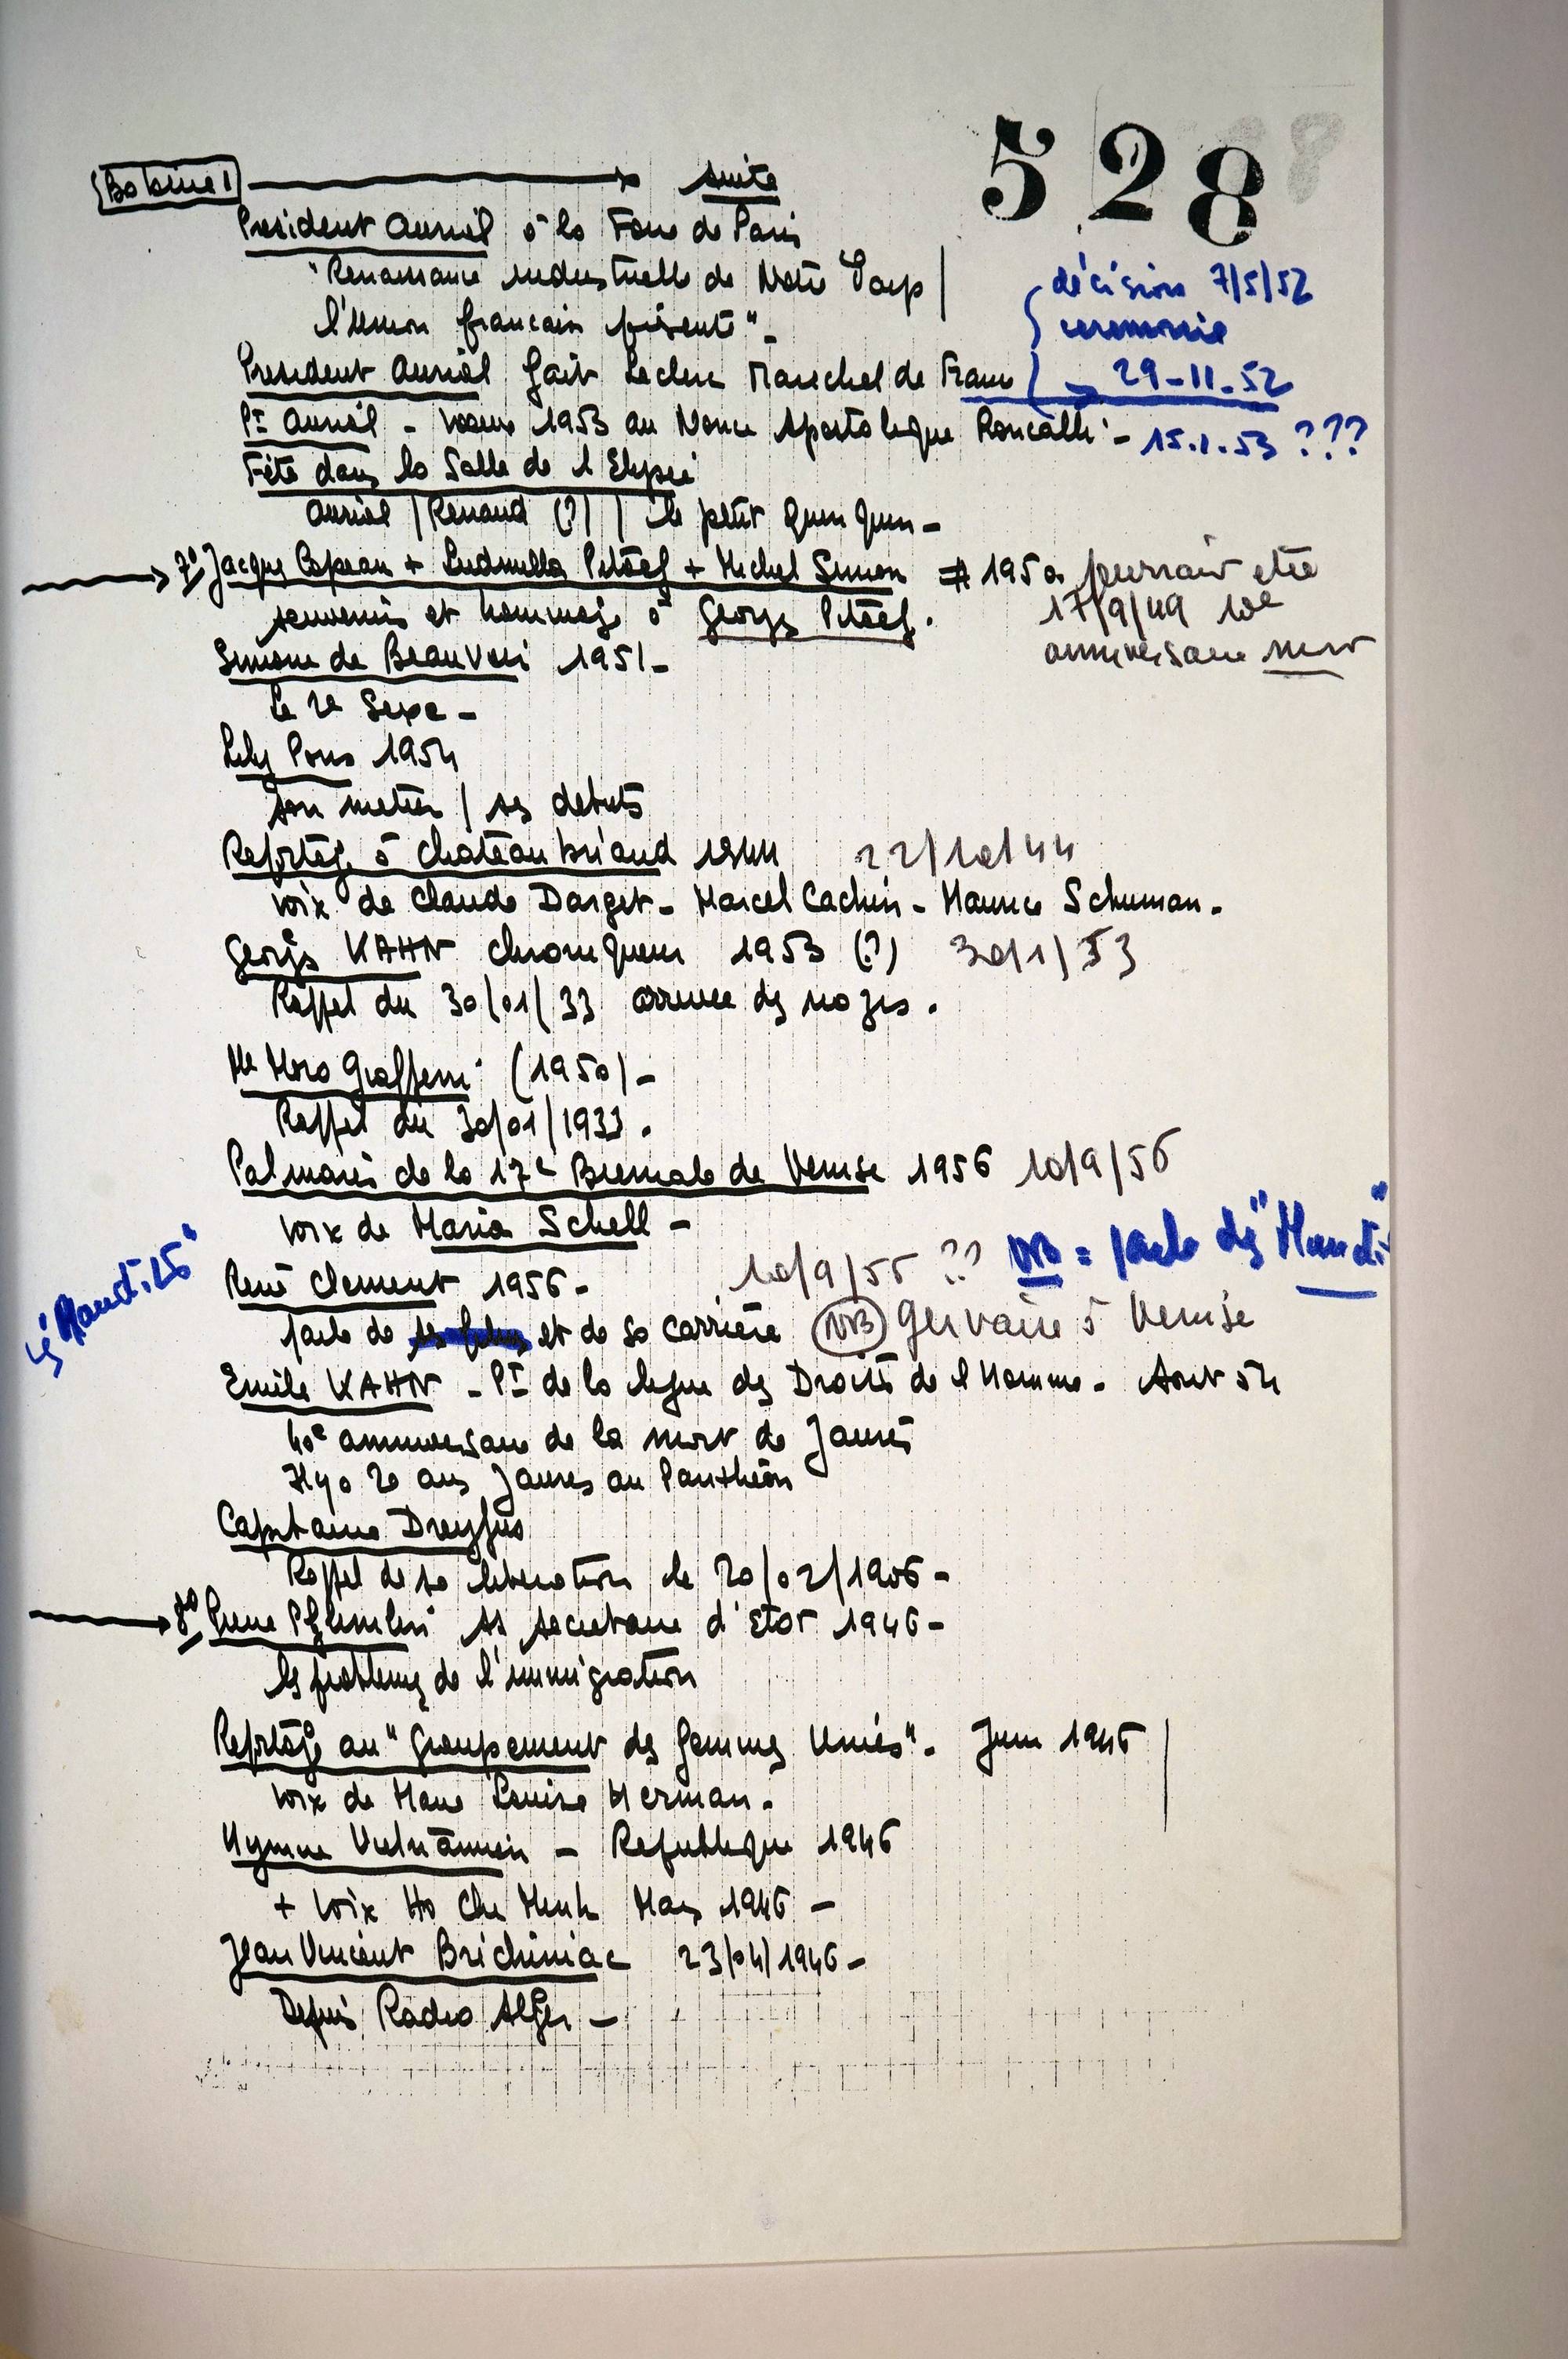 528
Bobine 1 → suite
President Auriol à la Foire de Paris
"Renaissance industrielle de Notre Pays
l'union français présenté" -
décision 7/5/52
ceremonie
President Auriol fait Leclerc Marechal de France → 29-11-52
Pt Auriol - Voeux 1953 au Nonce Apostolique Roncalli - 15.1.53 ???
Fête dans la Salle de l'Elysée
Auriol | Renaud (?) | le petit Quin quin -
→ 7° Jacques Copeau + Ludmilla Pitoëff + Michel Simon # 1950 pourrait etre
souvenirs et hommage à Georges Pitoëff.
17/9/49 10e
anniversaire mort
Simone de Beauvoir 1951 -
Le 2e Sexe -
Lily Pons 1954
son metier | ses debuts
Reportage à Chateaubriand 1944 22/10/44
voix de Claude Darget - Marcel Cachin - Maurice Schuman.
Georges KAHN chroniqueur 1953 (?) 30/1/53
Rappel du 30/01/33 arrivee des nazis.
Me Moro Giafferri (1950) -
Rappel du 30/01/1933.
Palmarès de la 17e Biennale de Venise 1956 10/9/56
voix de Maria Schell -
René Clement 1956 - 10/9/55 ?? NB = parle des "Maudits"
"Maudits"
parle de ses films et de sa carrière NB Gervaise à Venise
Emile KAHN - Pt de la ligue des Droits de l'Homme. Aout 54
40e anniversaire de la mort de Jaurès
Il y a 20 ans Jaures au Panthéon
Capitaine Dreyfus
Rappel de sa liberation le 20/02/1906 -
→ 8° Pierre Pflimlin ss secretaire d'Etat 1946 -
les problemes de l'immigration
Reportage au "Groupement des femmes Unies". Juin 1946
voix de Marie Louise Herman.
Hymne Vietnâmien - Republique 1946
+ voix Ho Chi Minh Mars 1946 -
Jean Vincent Brichiniac 23/04/1946 -
Depuis Radio Alger -